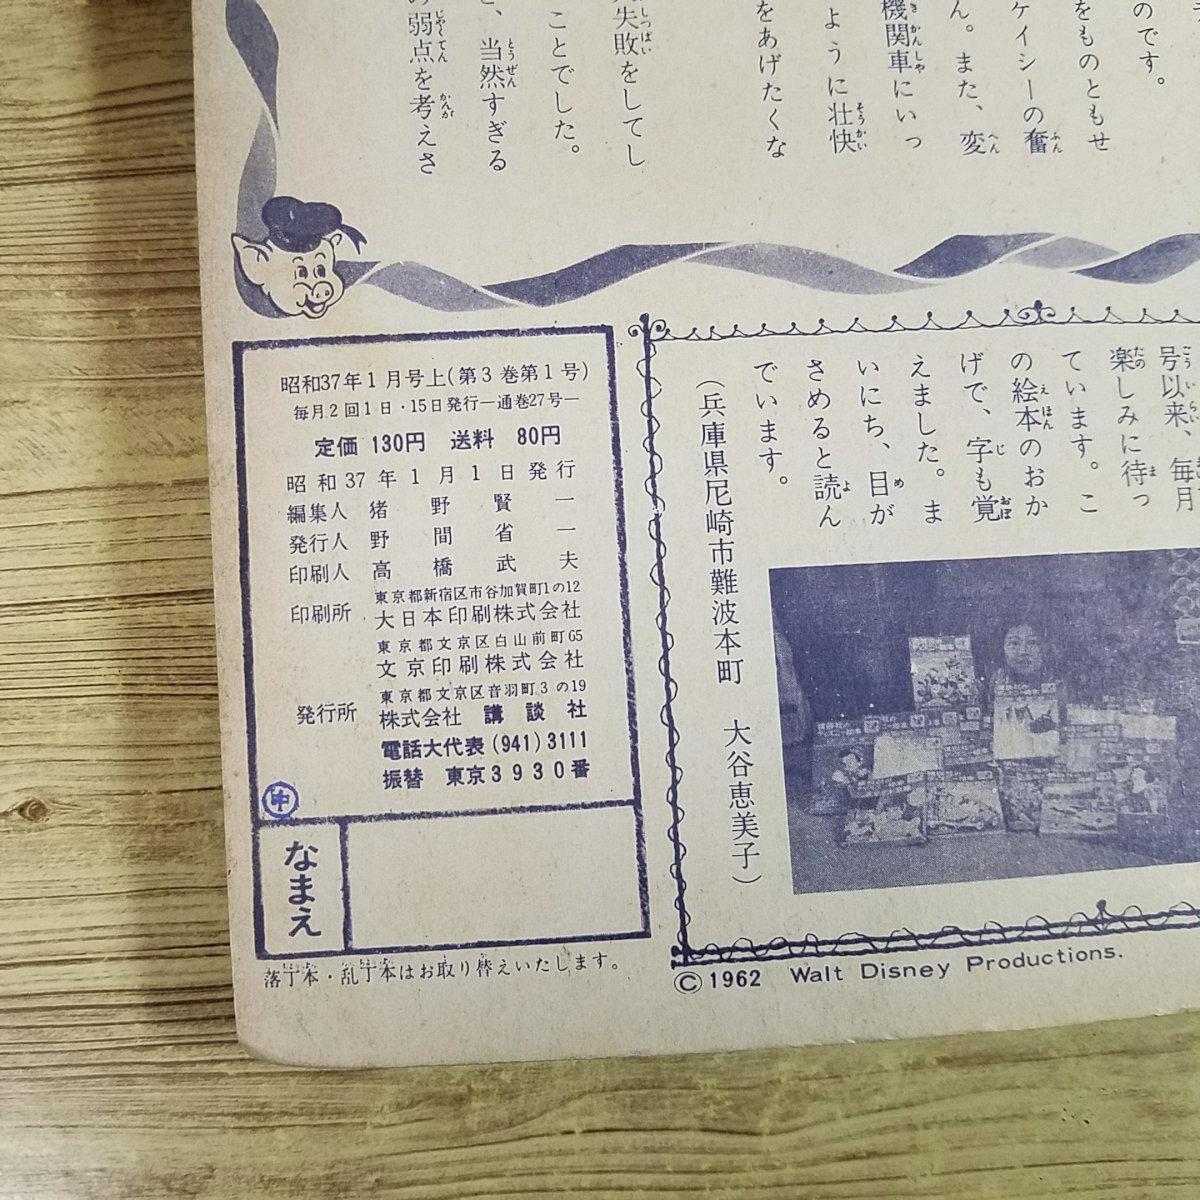 のです。
をものともせ
ケイシーの奮
ん。また、変
機関車にいっ
ように壮快
をあげたくな
失敗をしてし
ことでした。
、当然すぎる
の弱点を考えさ
号以来、毎月
楽しみに待っ
ています。こ
の絵本のおか
げで、字も覚
えました。ま
いにち、目が
さめると読ん
でいます。
(兵庫県尼崎市難波本町 大谷恵美子)
昭和37年1月号上(第3巻第1号)
毎月2回1日・15日発行―通巻27号―
定価 130円 送料 80円
昭和37年1月1日発行
編集人 猪野賢一
発行人 野間省一
印刷人 高橋武夫
東京都新宿区市谷加賀町1の12
印刷所 大日本印刷株式会社
東京都文京区白山前町65
文京印刷株式会社
東京都文京区音羽町3の19
発行所 株式会社 講談社
電話大代表(941)3111
振替 東京3930番
なまえ
落丁本・乱丁本はお取り替えいたします。
©1962 Walt Disney Productions.